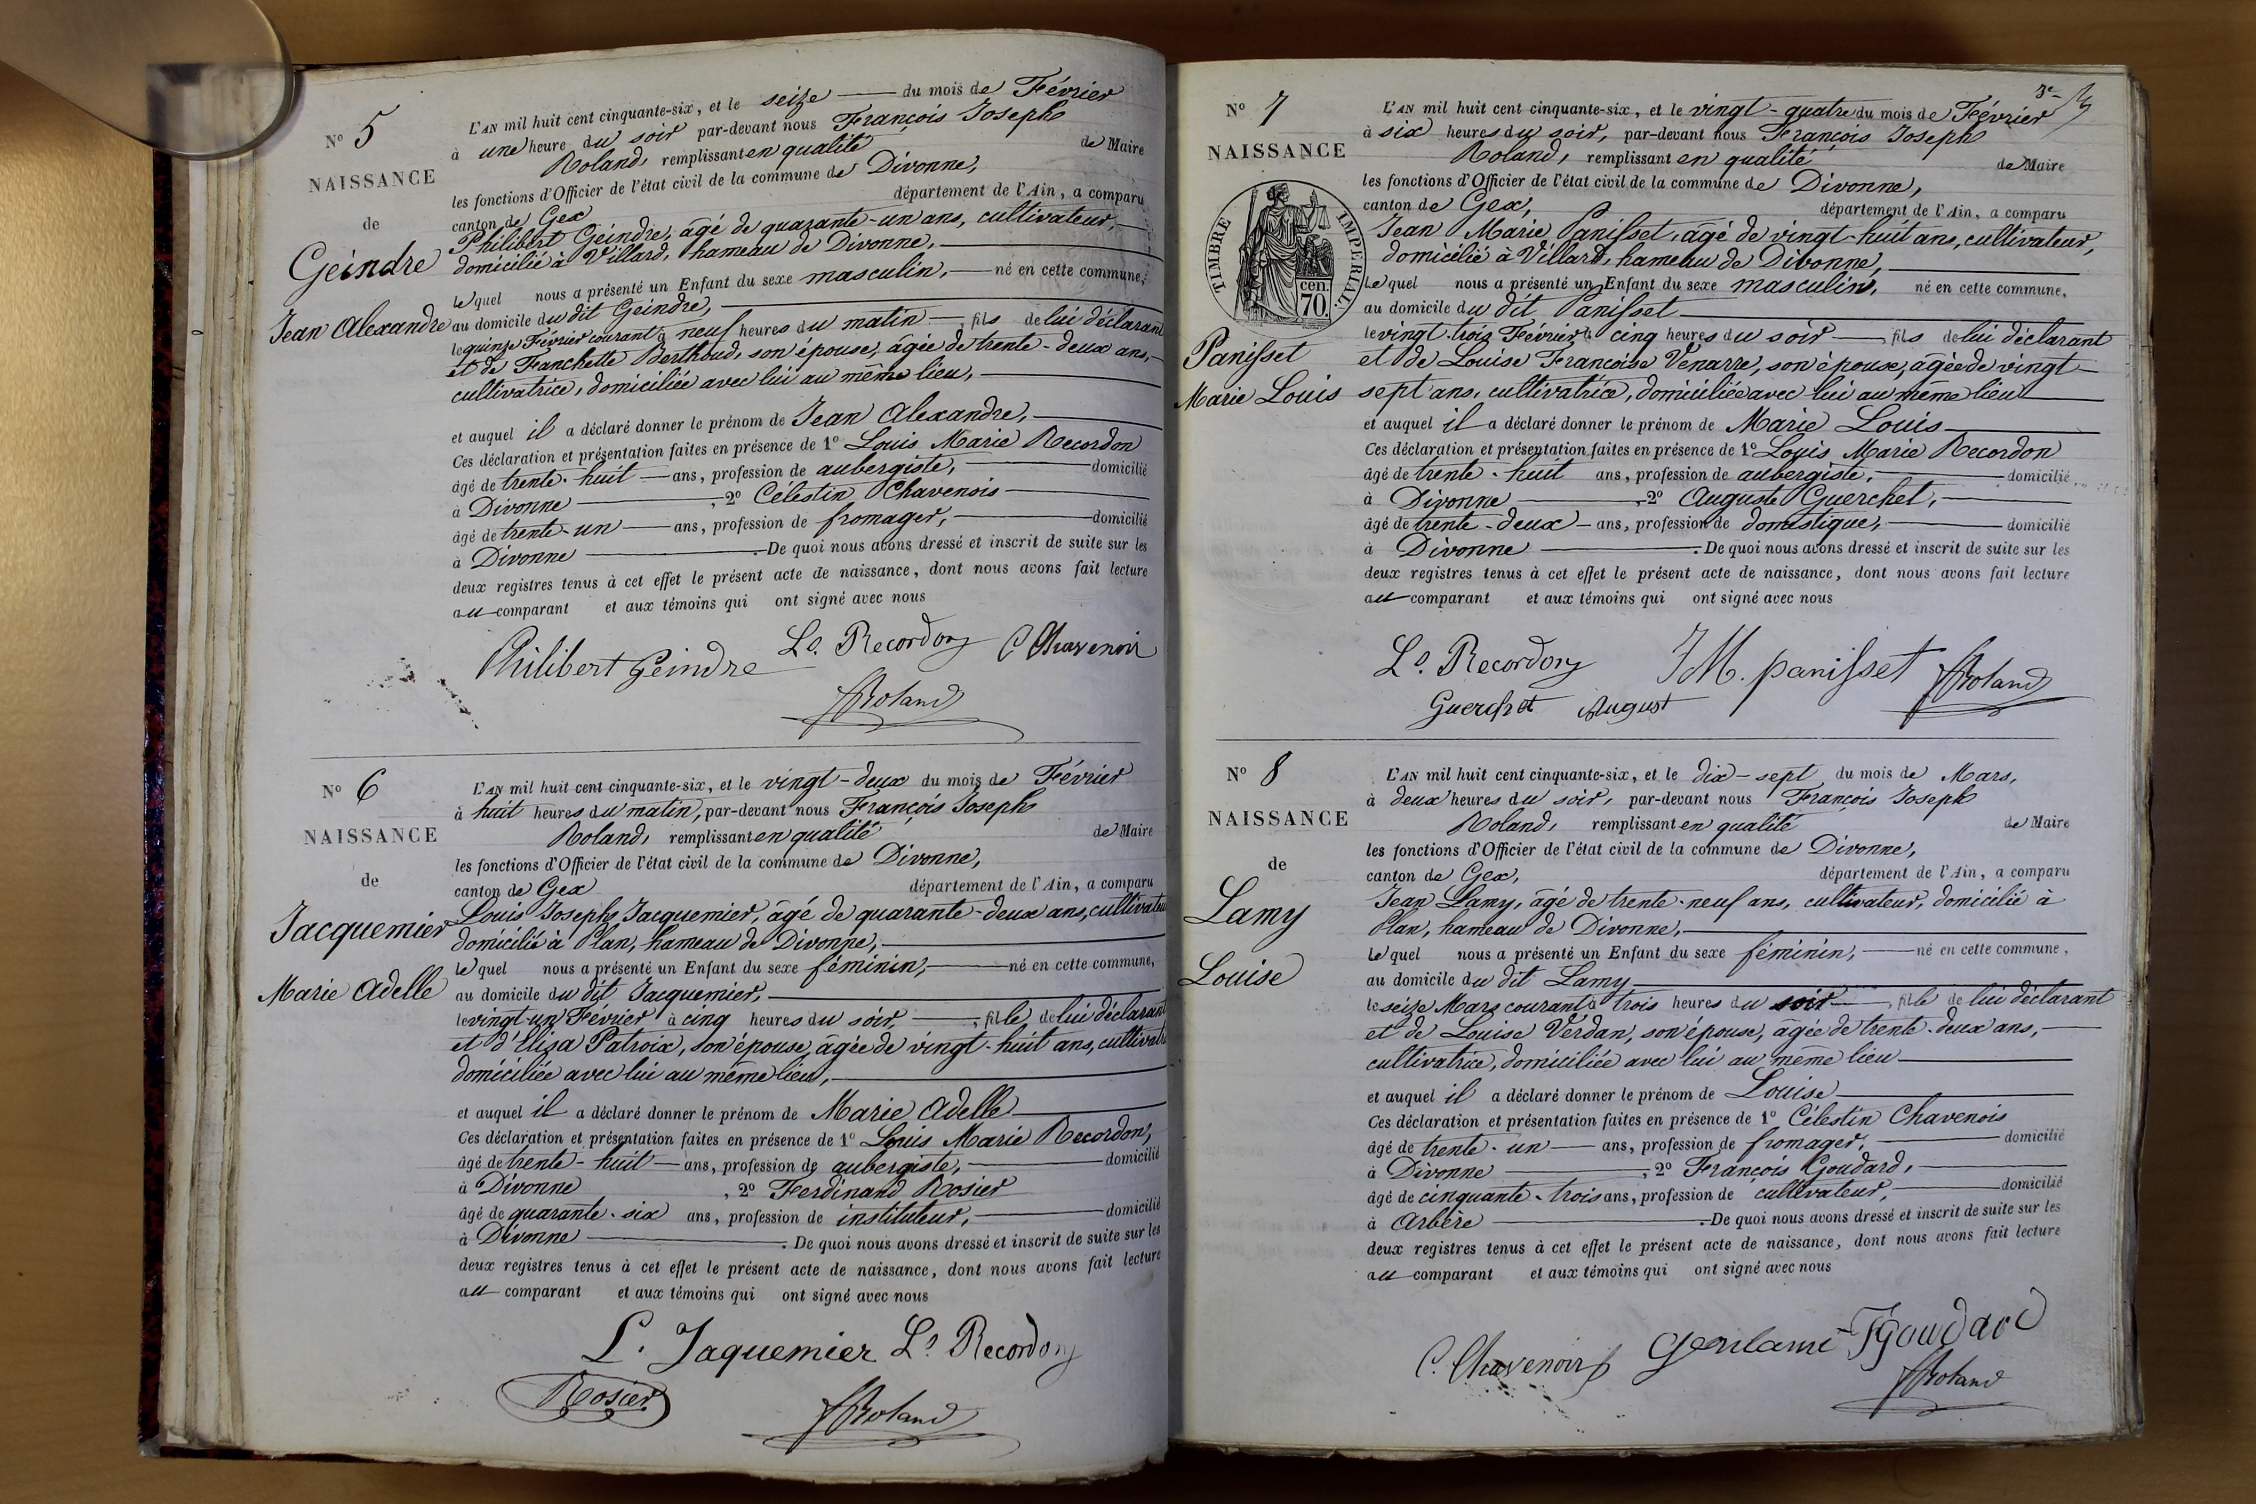 N° 5
NAISSANCE
de
Geindre
Jean Alexandre
L'AN mil huit cent cinquante-six, et le seize du mois de Février
à une heure du soir par-devant nous François Joseph
Roland, remplissant en qualité de Maire
les fonctions d'Officier de l'état civil de la commune de Divonne,
canton de Gex département de l'Ain, a comparu
Philibert Geindre, âgé de quarante-un ans, cultivateur,
domicilié à Villard, hameau de Divonne,
lequel nous a présenté un Enfant du sexe masculin, né en cette commune,
au domicile du dit Geindre,
le quinze Février courant à neuf heures du matin, fils de lui déclarant
et de Franchette Berthoud, son épouse, âgée de trente-deux ans,
cultivatrice, domiciliée avec lui au même lieu,
et auquel il a déclaré donner le prénom de Jean Alexandre,
Ces déclaration et présentation faites en présence de 1° Louis Marie Recordon
âgé de trente-huit ans, profession de aubergiste, domicilié
à Divonne, 2° Célestin Chavenois
âgé de trente-un ans, profession de fromager, domicilié
à Divonne. De quoi nous avons dressé et inscrit de suite sur les
deux registres tenus à cet effet le présent acte de naissance, dont nous avons fait lecture
au comparant et aux témoins qui ont signé avec nous
Philibert Geindre Ls. Recordon C Chavenoir
FRoland
N° 6
NAISSANCE
de
Jacquemier
Marie Adelle
L'AN mil huit cent cinquante-six, et le vingt-deux du mois de Février
à huit heures du matin, par-devant nous François Joseph
Roland, remplissant en qualité de Maire
les fonctions d'Officier de l'état civil de la commune de Divonne,
canton de Gex département de l'Ain, a comparu
Louis Joseph Jacquemier, âgé de quarante-deux ans, cultivateu
domicilié à Plan, hameau de Divonne,
lequel nous a présenté un Enfant du sexe féminin, né en cette commune,
au domicile du dit Jacquemier,
le vingt-un Février à cinq heures du soir, fille de lui déclarant
et d'Eliza Patroix, son épouse, âgée de vingt-huit ans, cultivatri
domiciliée avec lui au même lieu,
et auquel il a déclaré donner le prénom de Marie Adelle
Ces déclaration et présentation faites en présence de 1° Louis Marie Recordon,
âgé de trente-huit ans, profession de aubergiste, domicilié
à Divonne, 2° Ferdinand Rosier
âgé de quarante-six ans, profession de instituteur, domicilié
à Divonne. De quoi nous avons dressé et inscrit de suite sur les
deux registres tenus à cet effet le présent acte de naissance, dont nous avons fait lecture
au comparant et aux témoins qui ont signé avec nous
L. Jaquemier Ls Recordon
Rosier FRoland
3e
N° 7
NAISSANCE
TIMBRE IMPÉRIAL
70 cen.
Panisset
Marie Louis
L'AN mil huit cent cinquante-six, et le vingt-quatre du mois de Février
à six heures du soir, par-devant nous François Joseph
Roland, remplissant en qualité de Maire
les fonctions d'Officier de l'état civil de la commune de Divonne,
canton de Gex, département de l'Ain, a comparu
Jean Marie Panisset, âgé de vingt-huit ans, cultivateur,
domicilié à Villard, hameau de Divonne,
lequel nous a présenté un Enfant du sexe masculin, né en cette commune,
au domicile du dit Panisset
le vingt-trois Février à cinq heures du soir, fils de lui déclarant
et de Louise Françoise Vénarre, son épouse, âgée de vingt-
sept ans, cultivatrice, domiciliée avec lui au même lieu
et auquel il a déclaré donner le prénom de Marie Louis
Ces déclaration et présentation faites en présence de 1° Louis Marie Recordon
âgé de trente-huit ans, profession de aubergiste, domicilié
à Divonne, 2° Auguste Guerchet,
âgé de trente-deux ans, profession de domestique, domicilié
à Divonne. De quoi nous avons dressé et inscrit de suite sur les
deux registres tenus à cet effet le présent acte de naissance, dont nous avons fait lecture
au comparant et aux témoins qui ont signé avec nous
Ls. Recordon JM. panisset FRoland
Guerchet August
N° 8
NAISSANCE
de
Lamy
Louise
L'AN mil huit cent cinquante-six, et le dix-sept du mois de Mars,
à deux heures du soir, par-devant nous François Joseph
Roland, remplissant en qualité de Maire
les fonctions d'Officier de l'état civil de la commune de Divonne,
canton de Gex, département de l'Ain, a comparu
Jean Lamy, âgé de trente-neuf ans, cultivateur, domicilié à
Plan, hameau de Divonne,
lequel nous a présenté un Enfant du sexe féminin, né en cette commune,
au domicile du dit Lamy
le seize Mars courant à trois heures du soir, fille de lui déclarant
et de Louise Verdan, son épouse, âgée de trente-deux ans,
cultivatrice, domiciliée avec lui au même lieu
et auquel il a déclaré donner le prénom de Louise
Ces déclaration et présentation faites en présence de 1° Célestin Chavenois
âgé de trente-un ans, profession de fromager, domicilié
à Divonne, 2° François Goudard,
âgé de cinquante-trois ans, profession de cultivateur, domicilié
à Arbère. De quoi nous avons dressé et inscrit de suite sur les
deux registres tenus à cet effet le présent acte de naissance, dont nous avons fait lecture
au comparant et aux témoins qui ont signé avec nous
C. Chavenoir FGoudard
FRoland